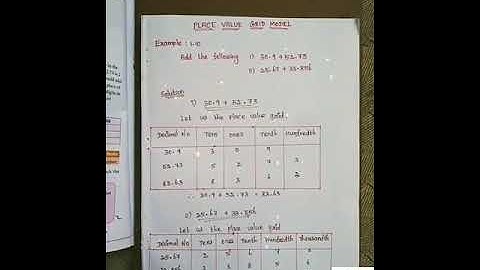 PLACE VALUE GRID MODEL
Example : 1.10
Add the following 1) 30.9 + 52.73
2) 25.67 + 33.856
Solution
1) 30.9 + 52.73
Let us the place value grid.
Decimal No Tens ones Tenth Hundredth
30.9 3 0 9
52.73 5 2 7 3
83.63 8 3 6 3
∴ 30.9 + 52.73 = 83.63
2) 25.67 + 33.856
Let us the place value grid
Decimal No Tens ones Tenth Hundredth Thousandth
25.67 2 5 6 7